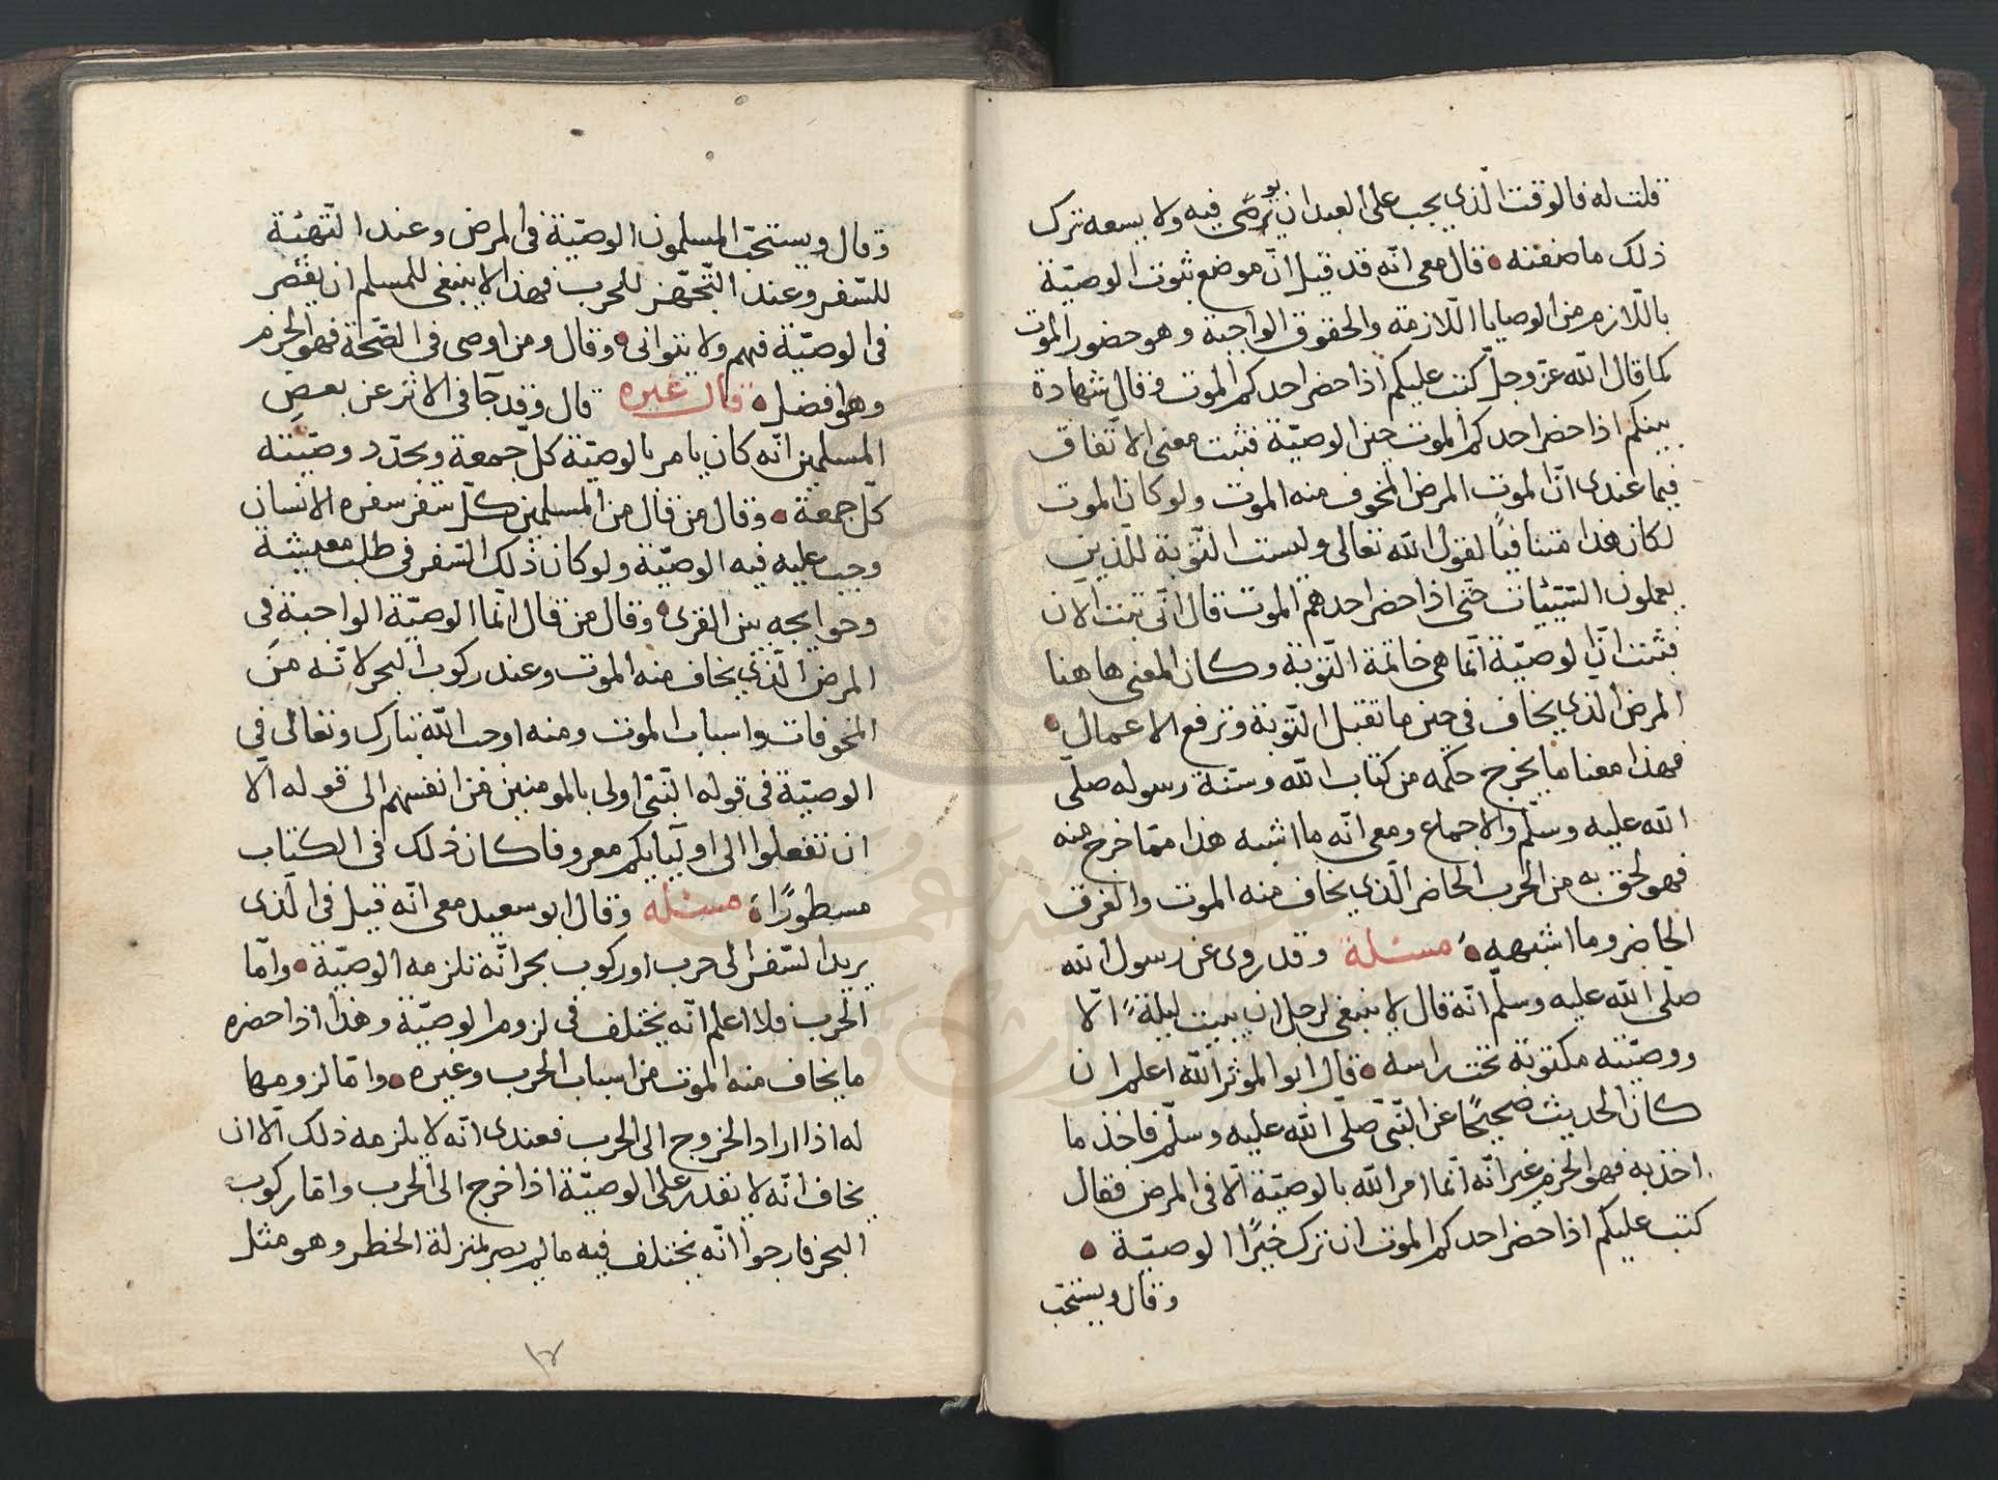 قلت له فالوقت الذي يجب على العبد ان يوصي فيه ولا يسعه ترك
ذلك ما صفته قال معي انّه قد قيل انّ موضع ثبوت الوصيّة
باللّازم من الوصايا اللّازمة والحقوق الواجبة وهو حضور الموت
كما قال الله عزّ وجلّ كتب عليكم اذا حضر احدكم الموت وقال شهادة
بينكم اذا حضر احدكم الموت حين الوصيّة فثبت معنى الاتّفاق
فيما عندي انّ الموت المرض المخوف منه الموت ولو كان الموت
لكان هذا متنافيًا لقول الله تعالى وليست التّوبة للّذين
يعملون السّيّئات حتّى اذا حضر احدهم الموت قال انّي تبت الان
فثبت انّ الوصيّة انّما هي خاتمة التّوبة وكان المعنى هاهنا
المرض الذي يخاف في حين ما تقبل التّوبة وترفع الاعمال
فهذا معنا ما يخرج حكمه من كتاب الله وسنّة رسوله صلّى
الله عليه وسلّم والاجماع ومعي انّه ما اشبه هذا ممّا خرج منه
فهو لحق به من الحرب الحاضر الّذي يخاف منه الموت والغرق
الحاضر وما اشبهه مسئلة وقد روى عن رسول الله
صلّى الله عليه وسلّم انّه قال لا ينبغي لرجل ان يبيت ليلةً الّا
ووصيّته مكتوبة تحت راسه قال ابو المؤثر الله اعلم ان
كان الحديث صحيحًا عن النّبيّ صلّى الله عليه وسلّم فاخذ ما
اخذ به فهو الحزم غير انّه انّما امر الله بالوصيّة الّا في المرض فقال
كتب عليكم اذا حضر احدكم الموت ان ترك خيرًا الوصيّة
وقال ويستحبّ
وقال ويستحبّ المسلمون الوصيّة في المرض وعند التّهئة
للسّفر وعند التّجهّز للحرب فهذا لا ينبغي للمسلم ان يقصّر
في الوصيّة فيهم ولا يتوانى وقال ومن اوصى في الصّحّة فهو الحزم
وهو افضل قال غيره قال وقد جآ في الاثر عن بعض
المسلمين انّه كان يامر بالوصيّة كلّ جمعة ويجدّد وصيّته
كلّ جمعة وقال من قال من المسلمين كلّ سفر سفره الانسان
وجب عليه فيه الوصيّة ولو كان ذلك السّفر في طلب معيشة
وحوايجه بين القرى وقال من قال انّما الوصيّة الواجبة في
المرض الّذي يخاف منه الموت وعند ركوب البحر لانّه من
المخوفات واسباب الموت ومنه اوجب الله تبارك وتعالى في
الوصيّة في قوله النّبيّ اولى بالمومنين من انفسهم الى قوله الّا
ان تفعلوا الى اوليايكم معروفا كان ذلك في الكتاب
مسطورًا مسئله وقال ابو سعيد معي انّه قيل في الّذي
يريد السّفر الى حرب او ركوب بحر انّه تلزمه الوصيّة وامّا
الحرب فلا اعلم انّه يختلف في لزوم الوصيّة وهذا اذا حضره
ما يخاف منه الموت من اسباب الحرب وغيره وامّا لزومها
له اذا اراد الخروج الى الحرب فعندي انّه لا يلزمه ذلك الّا ان
يخاف انّه لا يقدر على الوصيّة اذا خرج الى الحرب وامّا ركوب
البحر فارجوا انّه يختلف فيه ما لم يصر بمنزلة الخطر وهو مثل
١٧